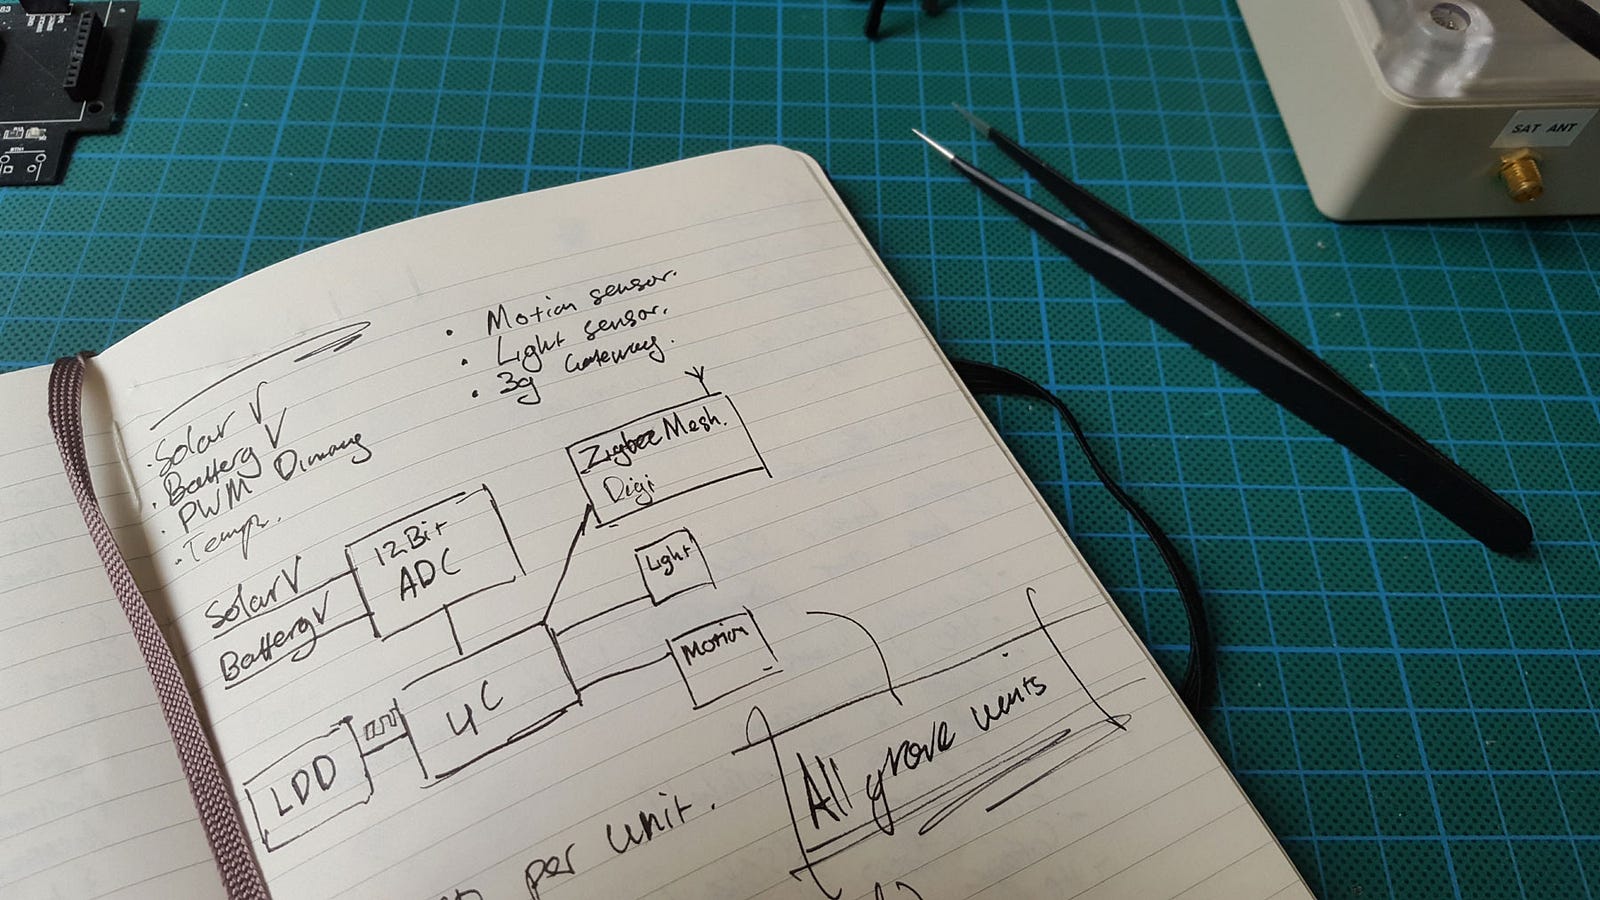 SAT ANT
• Motion sensor.
• Light sensor.
• 3g Gateway.
• Solar V
• Battery V
• PWM Dimming
• Temp.
Zigbee Mesh.
Digi
12Bit
ADC
Solar V
Battery V
Light
Motion
μC
LDD
All grove units
per unit.